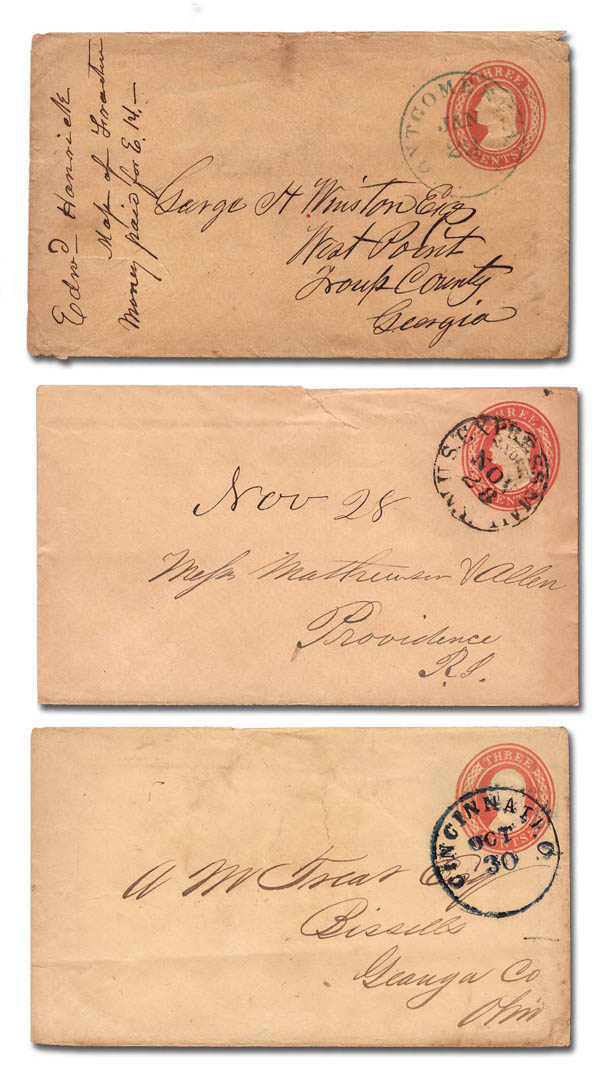 Edwd Hanrick
Map of Tracten
Money paid for E. H.—
THREE
CENTS
MONTGOMERY
JAN
2
George H Winston Esq
West Point
Troup County
Georgia
THREE
CENTS
U.S. EXPRESS MAIL
NOV
28
Nov 28
Messrs Mathewson & Allen
Providence
R.I.
THREE
CENTS.
CINCINNATI. O.
OCT
30
A M Treat Esq
Bissells
Geauga Co
Ohio